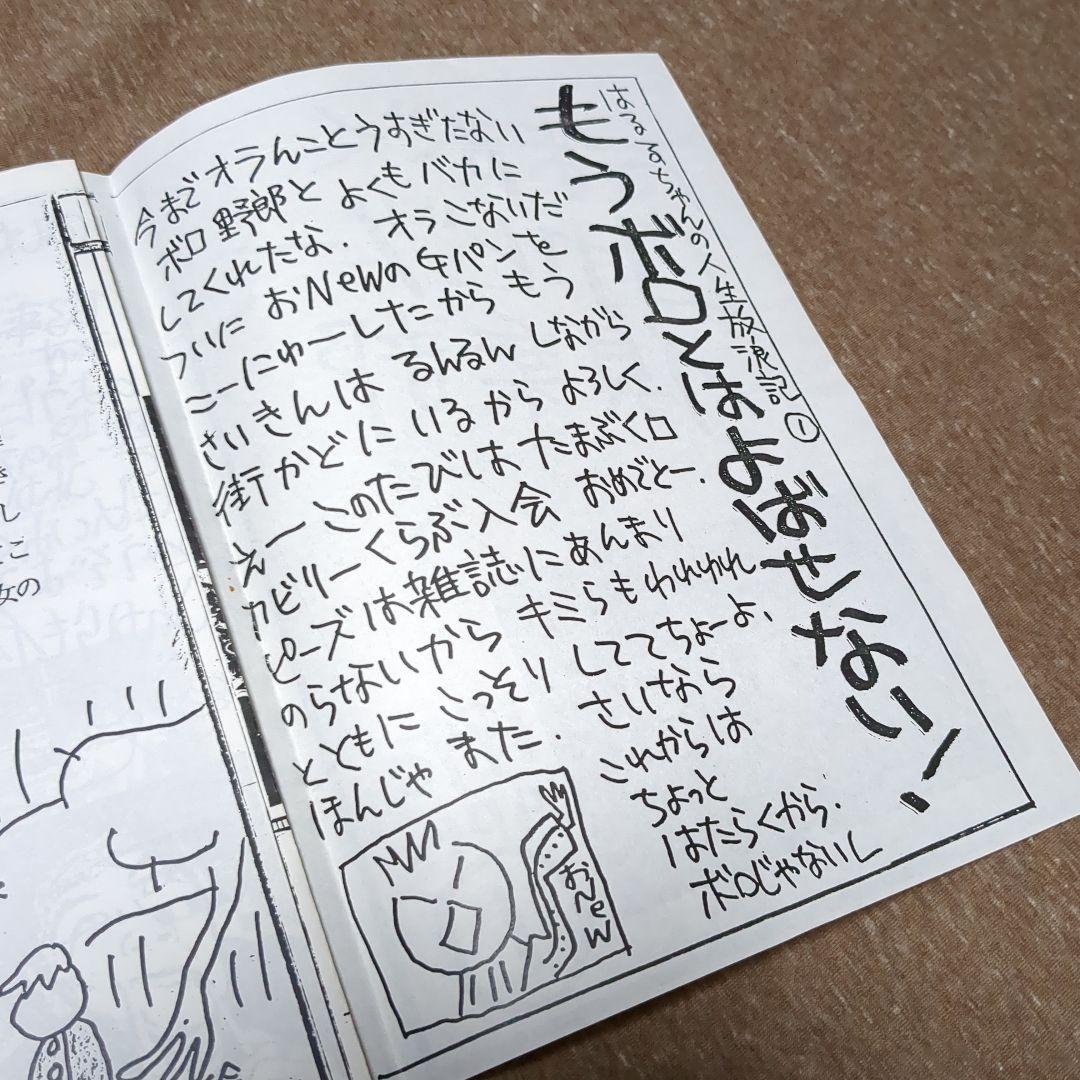 はるるちゃんの人生放浪記①
もうボロとはよばせない!
今までオラんことうすぎたない
ボロ野郎と よくも バカに
してくれたな. オラ こないだ
ついに おNewのGパンを
こーにゅーしたから もう
さいきんは るんるん しながら
街かどに いるから よろしく.
えー このたびは たまぶくロ
カビリーくらぶ入会 おめでとー.
ピーズは雑誌にあんまり
のらないから キミらも われわれ
とともに こっそり しててちょーよ.
ほんじゃ また. さいなら
これからは
ちょっと
はたらくから.
ボロじゃないし
おNew
し
こ
女の